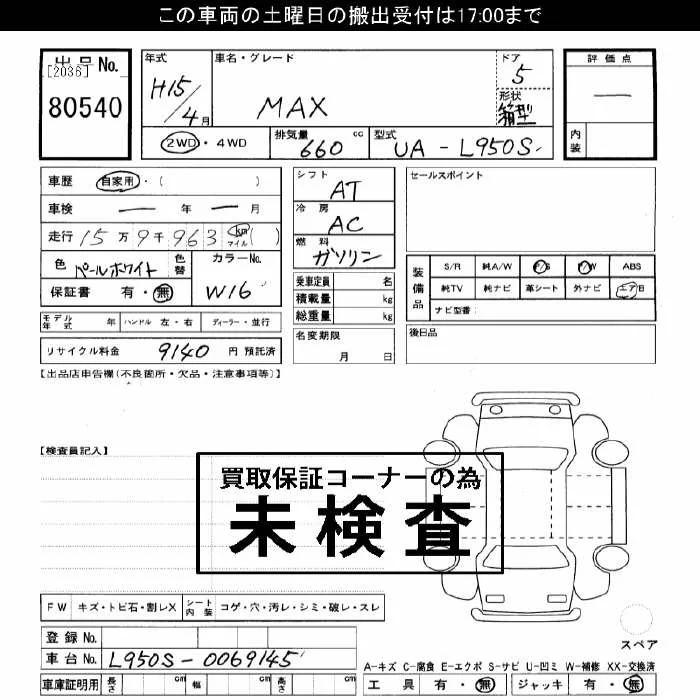 この車両の土曜日の搬出受付は17:00まで
出品No.
[2036]
80540
年式
H15/4月
車名・グレード
MAX
ドア
5
形状
箱型
2WD・4WD
排気量
660 cc
型式
UA-L950S
評価点
—
内装
車歴 自家用・( )
車検 — 年 — 月
走行 15万9千963 km マイル ( )
色 パールホワイト 色替
カラーNo.
W16
保証書 有・無
シフト
AT
冷房
AC
燃料
ガソリン
乗車定員 名
積載量 kg
総重量 kg
名変期限
月 日
セールスポイント
装備品
S/R 純A/W P/S P/W ABS
純TV 純ナビ 革シート 外ナビ エアB
ナビ型番:
後日品
モデル年式 年 ハンドル 左・右 ディーラー・並行
リサイクル料金 9140 円 預託済
【出品店申告欄(不良箇所・欠品・注意事項等)】
【検査員記入】
買取保証コーナーの為
未検査
FW キズ・トビ石・割レX シート内装 コゲ・穴・汚レ・シミ・破レ・スレ
登録No.
車台No. L950S-0069145
車庫証明用 長さ cm 幅 cm 高さ cm
スペア
A-キズ C-腐食 E-エクボ S-サビ U-凹ミ W-補修 XX-交換済
工具 有・無 ジャッキ 有・無